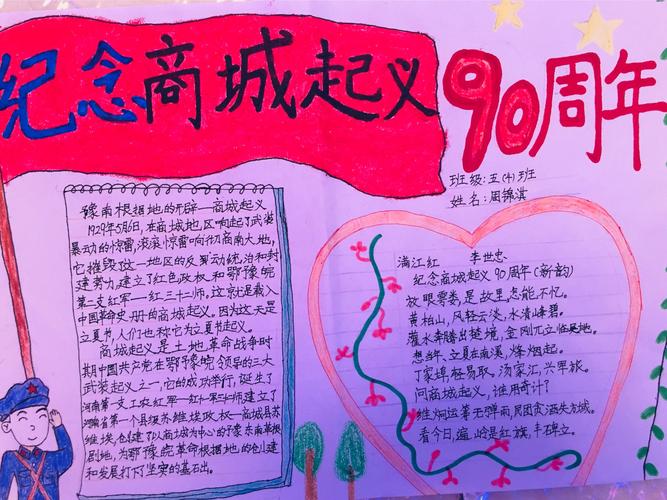 纪念商城起义90周年
班级:五(4)班
姓名:周锦淇
豫南根据地的开辟—商城起义
1929年5月6日,在商城地区响起了武装
暴动的惊雷,滚滚惊雷响彻商南大地,
它摧毁了这一地区的反动统治和封
建势力,建立了红色政权和鄂豫皖
第二支红军—红三十二师。这就是载入
中国革命史册的商城起义。因为这天是
立夏节,人们也称它为立夏节起义。
商城起义是土地革命战争时
期中国共产党在鄂豫皖领导的三大
武装起义之一,它的成功举行,诞生了
河南第一支工农红军—红三十二师建立了
河南省第一个县级苏维埃政权—商城县苏
维埃,创建了以商城为中心的豫东南革根
剧地,为鄂豫皖革命根据地的创建
和发展打下了坚实的基石出。
满江红 李世忠
纪念商城起义90周年(新韵)
放眼雾娄,是故里,怎能不忆。
黄柏山,风轻云淡,水清峰碧。
灌水奔腾出楚境,金刚兀立临吴地。
想当年,立夏在南溪,烽烟起。
丁家埠,轻易取,汤家汇,兴军旅。
问商城起义,谁用奇计?
维炯运筹无弹雨,周团贪酒失方城。
看今日,遍岭是红旗,丰碑立。